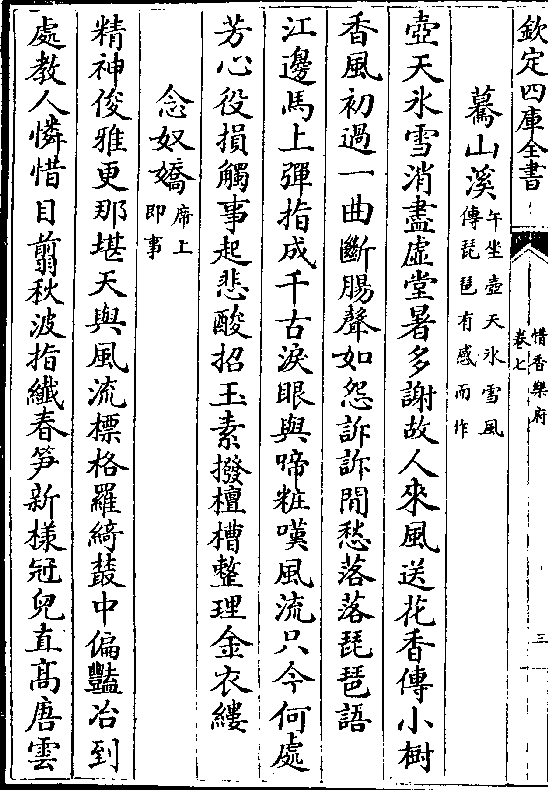 欽定四庫全書
惜香樂府
卷七
三
驀山溪
午坐壺天氷雪風
傳琵琶有感而作
壺天氷雪消盡虛堂暑多謝故人來風送花香傳小樹
香風初過一曲斷腸聲如怨訴訴閒愁落落琵琶語
江邊馬上彈指成千古淚眼與啼粧嘆風流只今何處
芳心役損觸事起悲酸招玉素撥檀槽整理金衣縷
念奴嬌
席上
即事
精神俊雅更那堪天與風流標格羅綺叢中偏豔冶到
處教人憐惜目翦秋波指纖春笋新様冠兒直髙唐雲